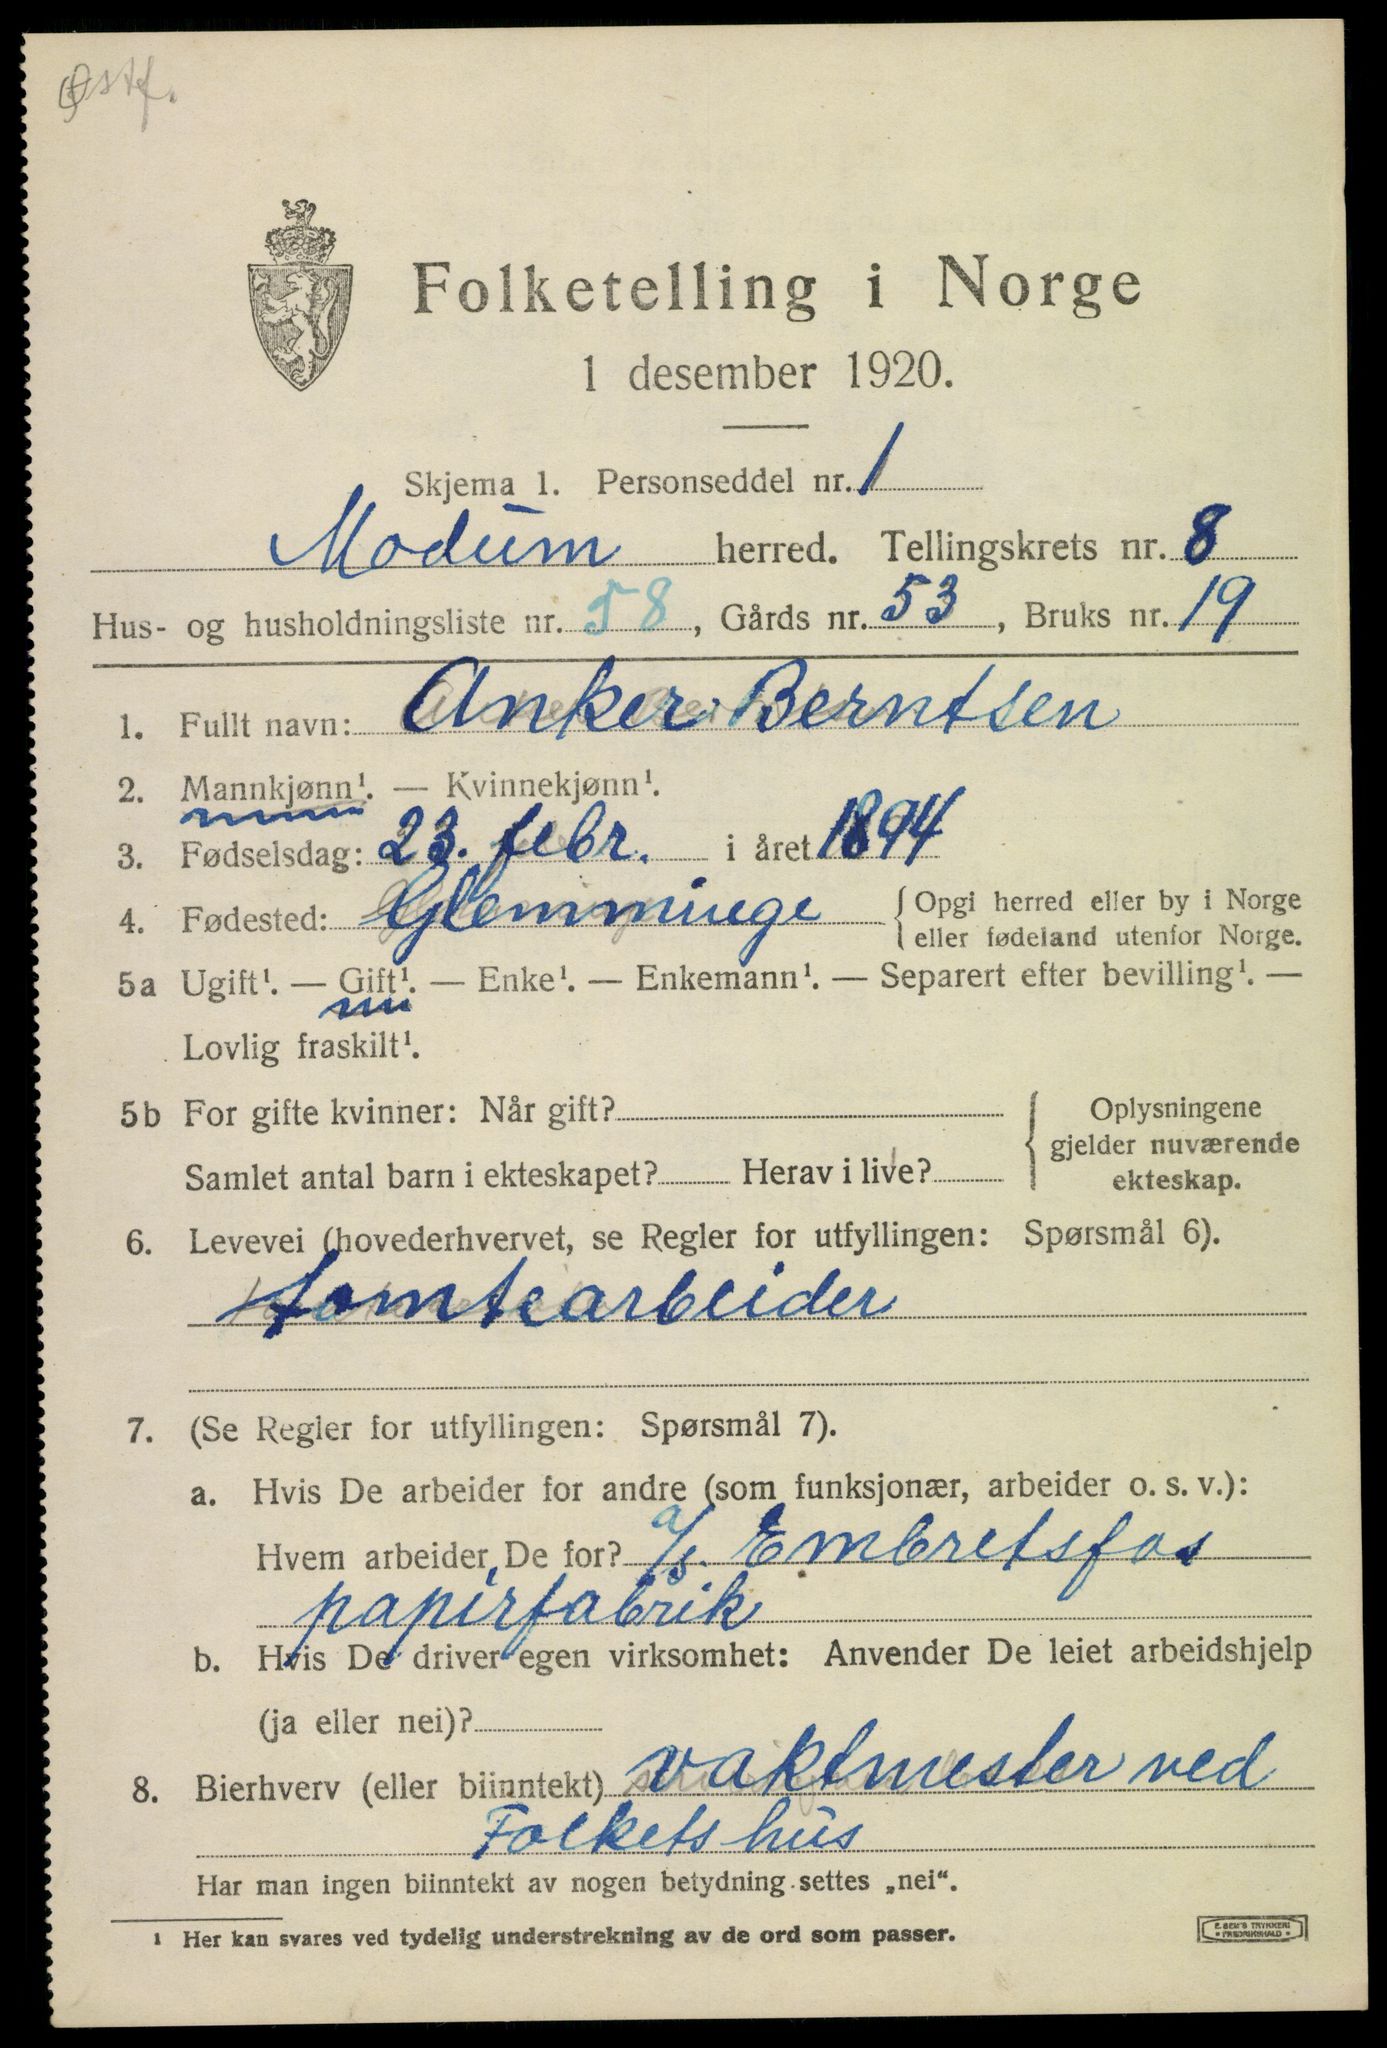 Østf.
Folketelling i Norge
1 desember 1920.
Skjema 1. Personseddel nr. 1
Modum herred. Tellingskrets nr. 8
Hus- og husholdningsliste nr. 58, Gårds nr. 53, Bruks nr. 19
1. Fullt navn: Anker Berntsen
2. Mannkjønn¹. — Kvinnekjønn¹.
3. Fødselsdag: 23. febr. i året 1894
4. Fødested: Glemminge { Opgi herred eller by i Norge
eller fødeland utenfor Norge.
5a Ugift¹. — Gift¹. — Enke¹. — Enkemann¹. — Separert efter bevilling¹. —
Lovlig fraskilt¹.
5b For gifte kvinner: Når gift? { Oplysningene
gjelder nuværende
Samlet antal barn i ekteskapet? Herav i live? ekteskap.
6. Levevei (hovederhvervet, se Regler for utfyllingen: Spørsmål 6).
tomtearbeider
7. (Se Regler for utfyllingen: Spørsmål 7).
a. Hvis De arbeider for andre (som funksjonær, arbeider o. s. v.):
Hvem arbeider De for? a/s. Embretsfos
papirfabrik
b. Hvis De driver egen virksomhet: Anvender De leiet arbeidshjelp
(ja eller nei)?
8. Bierhverv (eller biinntekt) vaktmester ved
Folkets hus
Har man ingen biinntekt av nogen betydning settes „nei“.
1 Her kan svares ved tydelig understrekning av de ord som passer.
E. SEM'S TRYKKERI
• FREDRIKSHALD •